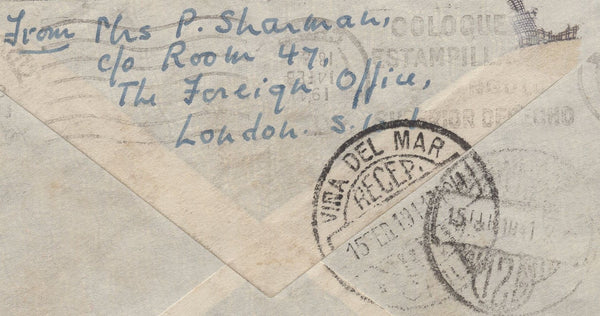 From Mrs P. Sharman,
c/o Room 47,
The Foreign Office,
London. S.
COLOQUE
ESTAMPILL
DERECHO
VIÑA DEL MAR
RECEP.
15 FEB 1941
15 1941